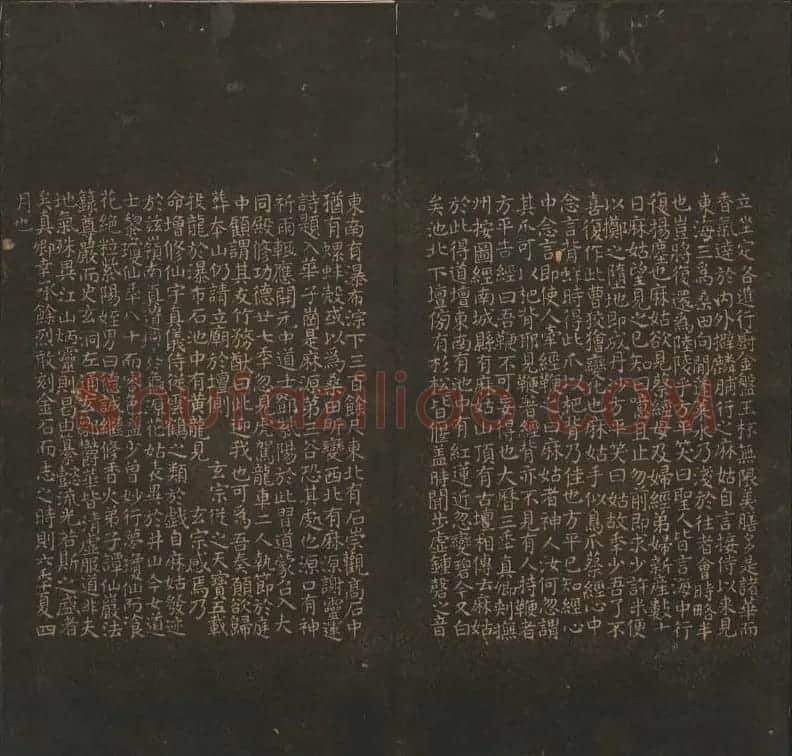 立坐定各進行廚金盤玉杯無限美膳多是諸華而
香氣達於內外擗麟脯行之麻姑自言接待以來見
東海三為桑田向間蓬萊水乃淺於往者會時略半
也豈將復還為陸陵乎方平笑曰聖人皆言海中行
復揚塵也麻姑欲見蔡經母及婦經弟婦新產數十
日麻姑望見之已知曰噫且止勿前即求少許米便
以擲之墮地即成丹沙方平笑曰姑故年少吾了不
喜復作此曹狡獪變化也麻姑手似鳥爪蔡經心中
念言背蛘時得此爪以杷背乃佳也方平已知經心
中念言即使人牽經鞭之曰麻姑者神人汝何忽謂
其爪可以杷背耶見鞭著經背亦不見有人持鞭者
方平告經曰吾鞭不可妄得也大曆三年真卿刺撫
州按圖經南城縣有麻姑山頂有古壇相傳云麻姑
於此得道壇東南有池中有紅蓮近忽變碧今又白
矣池北下壇傍有杉松皆偃蓋時聞步虛鍾磬之音
東南有瀑布淙下三百餘尺東北有石崇觀高石中
猶有螺蚌殼或以為桑田所變西北有麻源謝靈運
詩題入華子崗是麻源第三谷恐其處也源口有神
祈雨輒應開元中道士鄧紫陽於此習道蒙召入大
同殿修功德廿七年忽見虎駕龍車二人執節於庭
中顧謂其友竹務猷曰此迎我也可為吾奏願欲歸
葬本山仍請立廟於壇側 玄宗從之天寶五載
投龍於瀑布石池中有黃龍見 玄宗感焉乃
命增修仙宇真儀侍從雲鶴之類於戲自麻姑發迹
於茲嶺南真遺壇於龜源花姑表異於井山今女道
士黎瓊仙年八十而容色益少曾妙行夢瓊仙而飡
花絕粒紫陽姪男曰德誠繼修香火弟子譚仙巖法
籙尊嚴而史玄洞左通玄鄒鬱華皆清虛服道非夫
地氣殊異江山炳靈則曷由纂懿流光若斯之盛者
矣真卿幸承餘烈敢刻金石而志之時則六年夏四
月也
Shufaziliao.COM